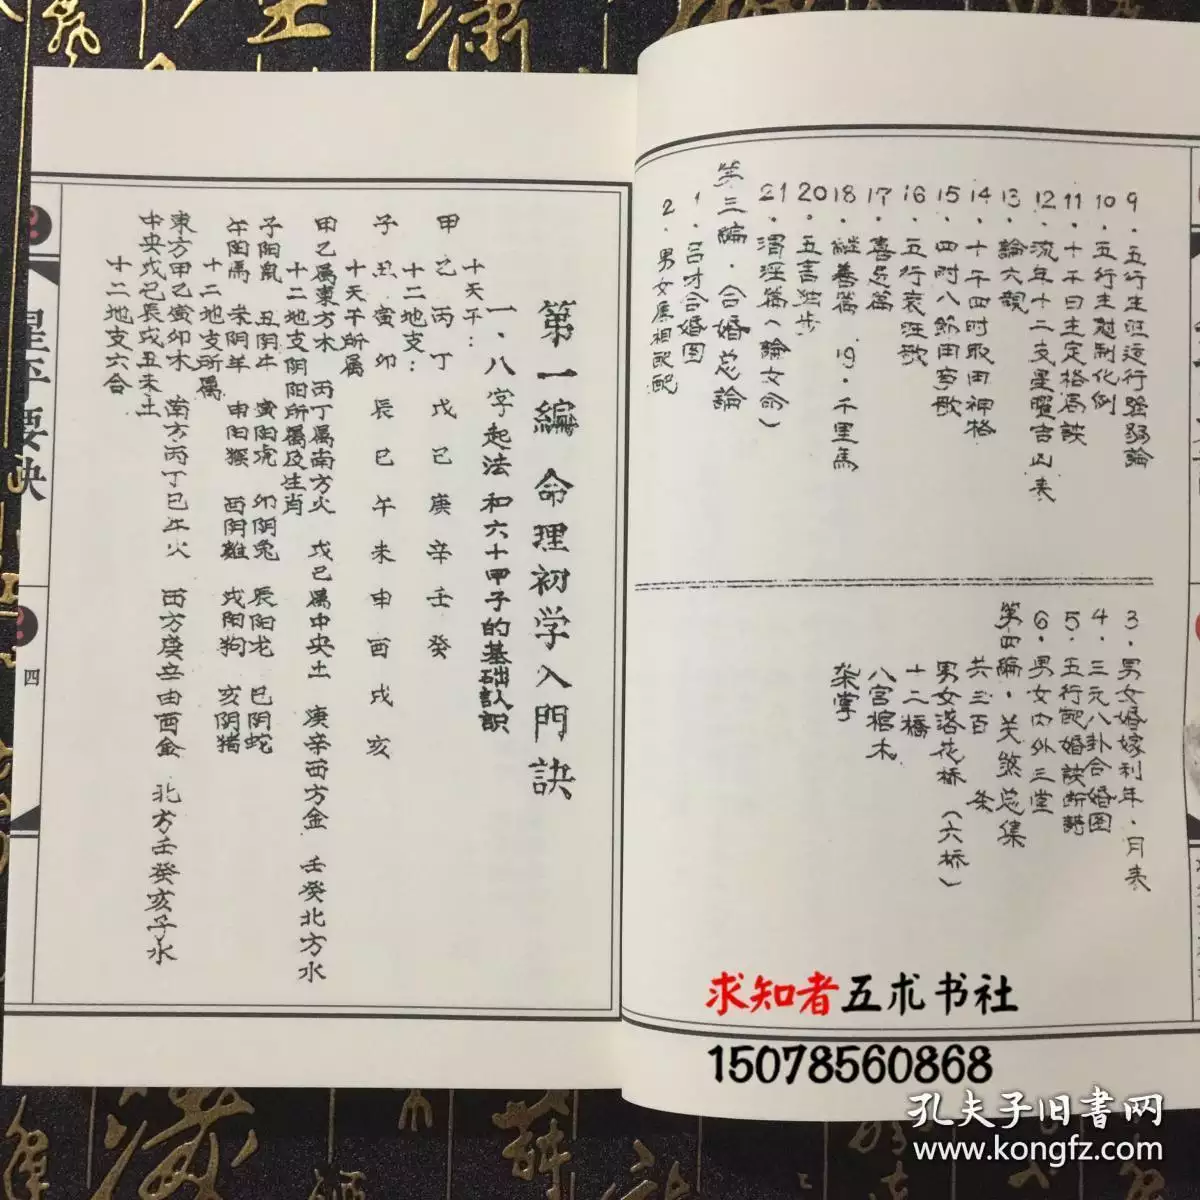 9．五行生旺运行强弱論
10．五行生尅制化例
11．十千日主定格局訣
12．流年十二支星曜吉凶表
13．論六親
14．十干四时取用神格
15．四时八節用事歌
16．五行衰旺歌
17．喜忌篇
18．継善篇 19．千里馬
20．五言独步
21．渭泾篇（論女命）
第三編．合婚总論
1．吕才合婚图
2．男女属相配配
3．男女婚嫁利年．月表
4．三元八卦合婚图
5．五行配婚訣断語
6．男女内外三堂
第四編．关煞总集
共三百 条
男女落花桥（六桥）
十二橋
八宫棺木
架掌
第一編 命理初学入門訣
一．八字起法和六十甲子的基础认识
十天干：
甲乙丙丁戊己庚辛壬癸
十二地支：
子丑寅卯辰巳午未申酉戌亥
十天干所属
甲乙属東方木 丙丁属南方火 戊己属中央土 庚辛西方金 壬癸北方水
十二地支阴阳所属及生肖
子阳鼠 丑阴牛 寅阳虎 卯阴兔 辰阳龙 巳阴蛇
午阳馬 未阴羊 申阳猴 酉阴雞 戌阳狗 亥阴猪
十二地支所属
東方甲乙寅卯木 南方丙丁巳午火 西方庚辛申酉金 北方壬癸亥子水
中央戊己辰戌丑未土
十二地支六合
星平要訣
四
求知者五术书社
15078560868
孔夫子旧書网
www.kongfz.com